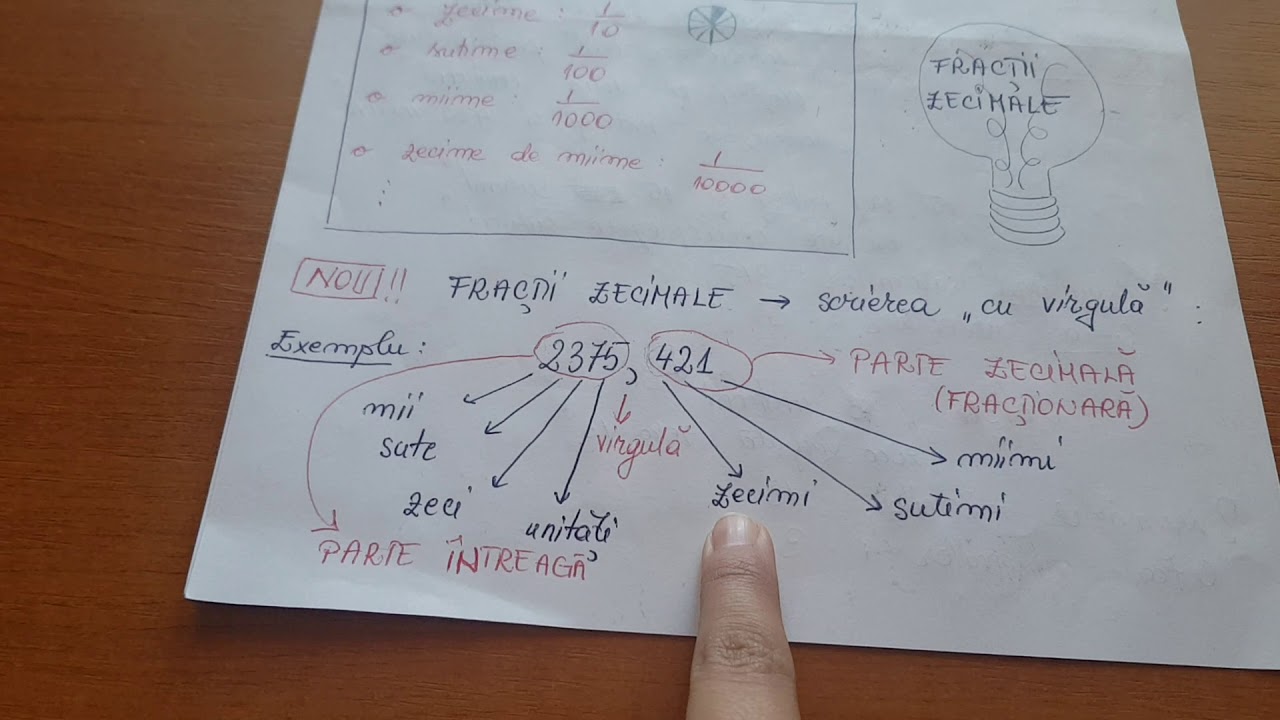 zecime : 1/10
sutime : 1/100
miime : 1/1000
zecime de miime : 1/10000
⋮
FRACȚII
ZECIMALE
NOU!!! FRACȚII ZECIMALE → scrierea „cu virgulă” :
Exemplu : 2375,421 → PARTE ZECIMALĂ
(FRACȚIONARĂ)
mii
sute
zeci
unități
virgulă
zecimi
sutimi
miimi
PARTE ÎNTREAGĂ